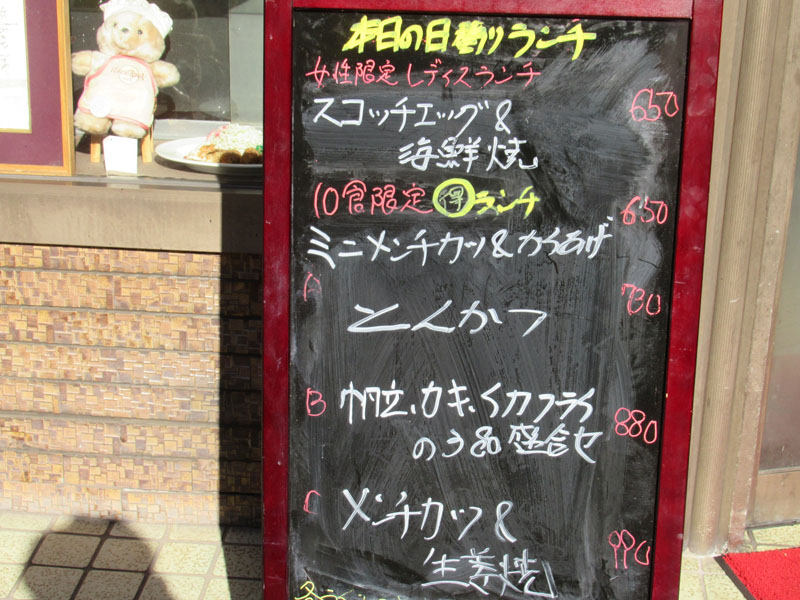 本日の日替りランチ
女性限定レディスランチ
スコッチエッグ& 650
海鮮焼
10食限定 得 ランチ 650
ミニメンチカツ&からあげ
A 730
とんかつ
B 帆立、カキ、イカフライ
の3品盛合せ 880
C メンチカツ&
生姜焼 990